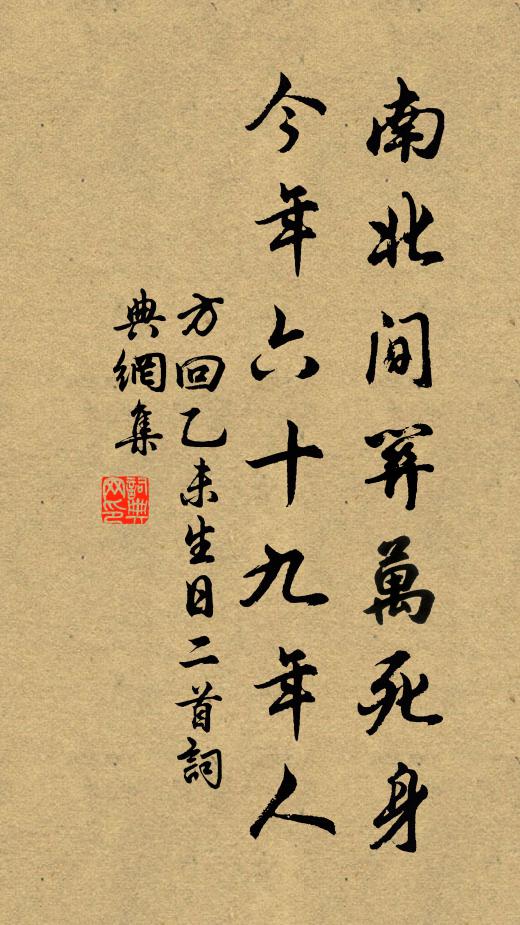 南北間關萬死身
今年六十九年人
方回乙未生日二首詞
典網集
詞典
网印